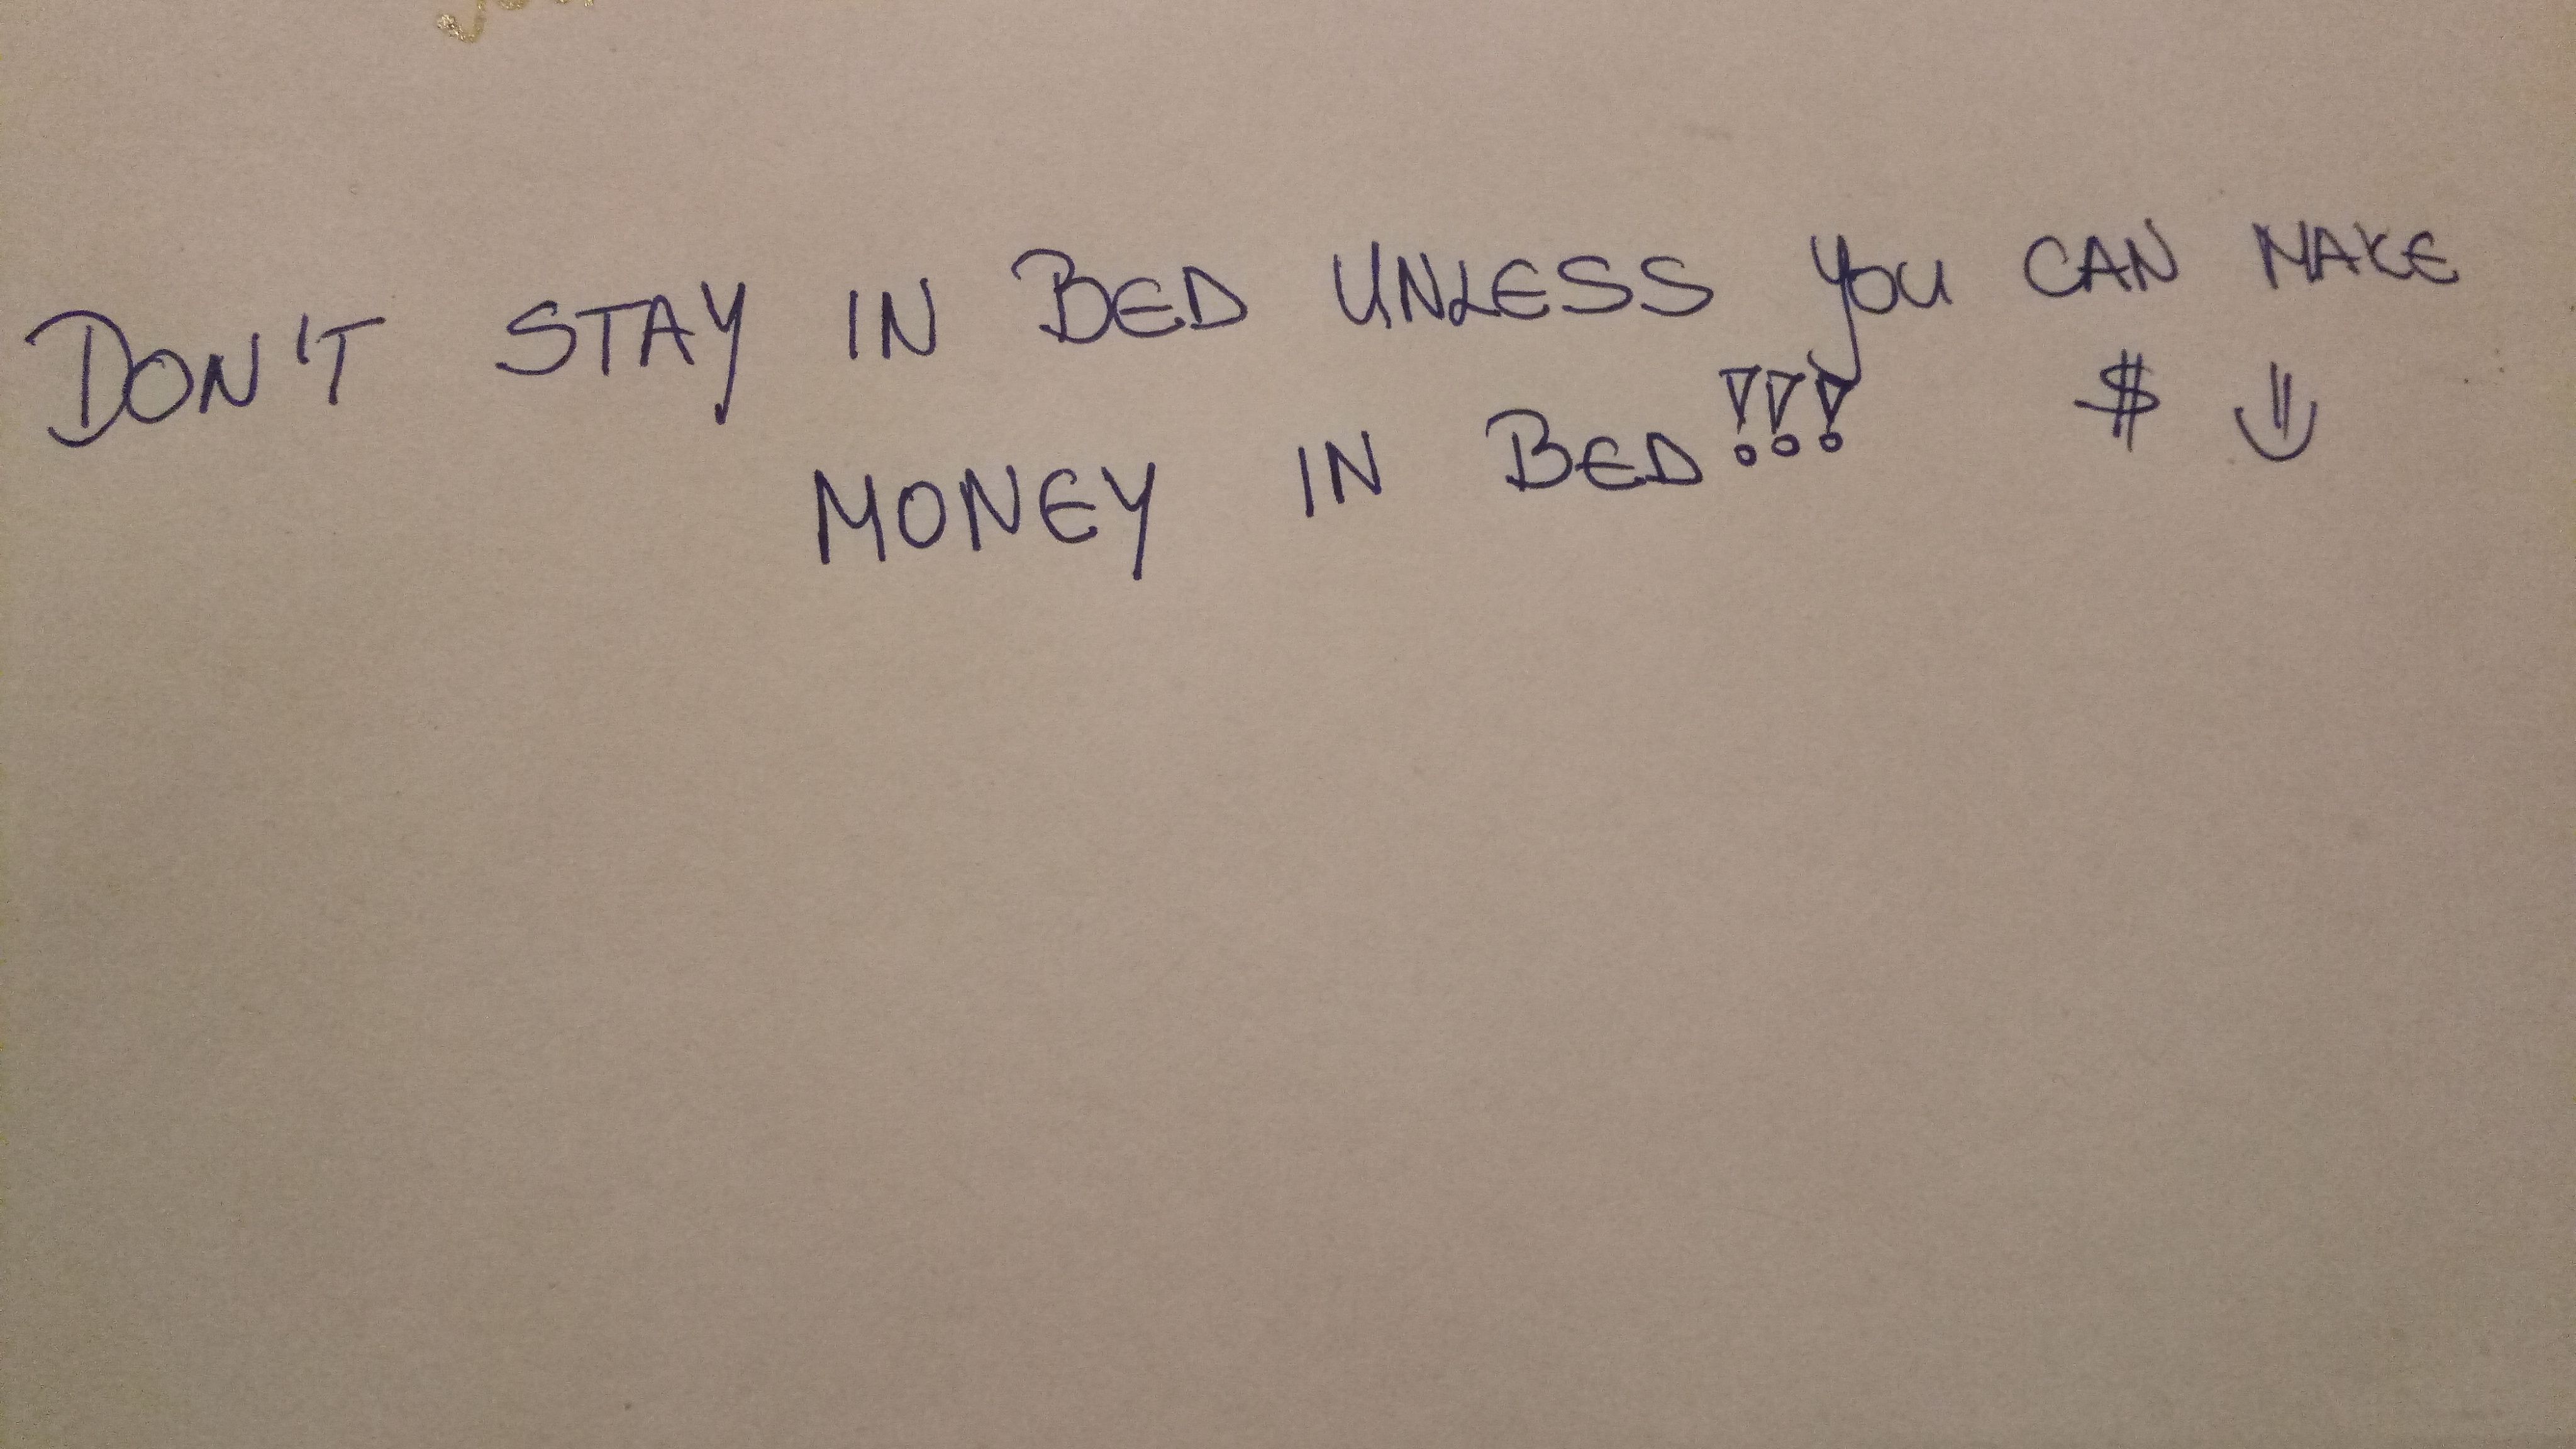 DON'T STAY IN BED UNLESS YOU CAN MAKE
MONEY IN BED!!! $